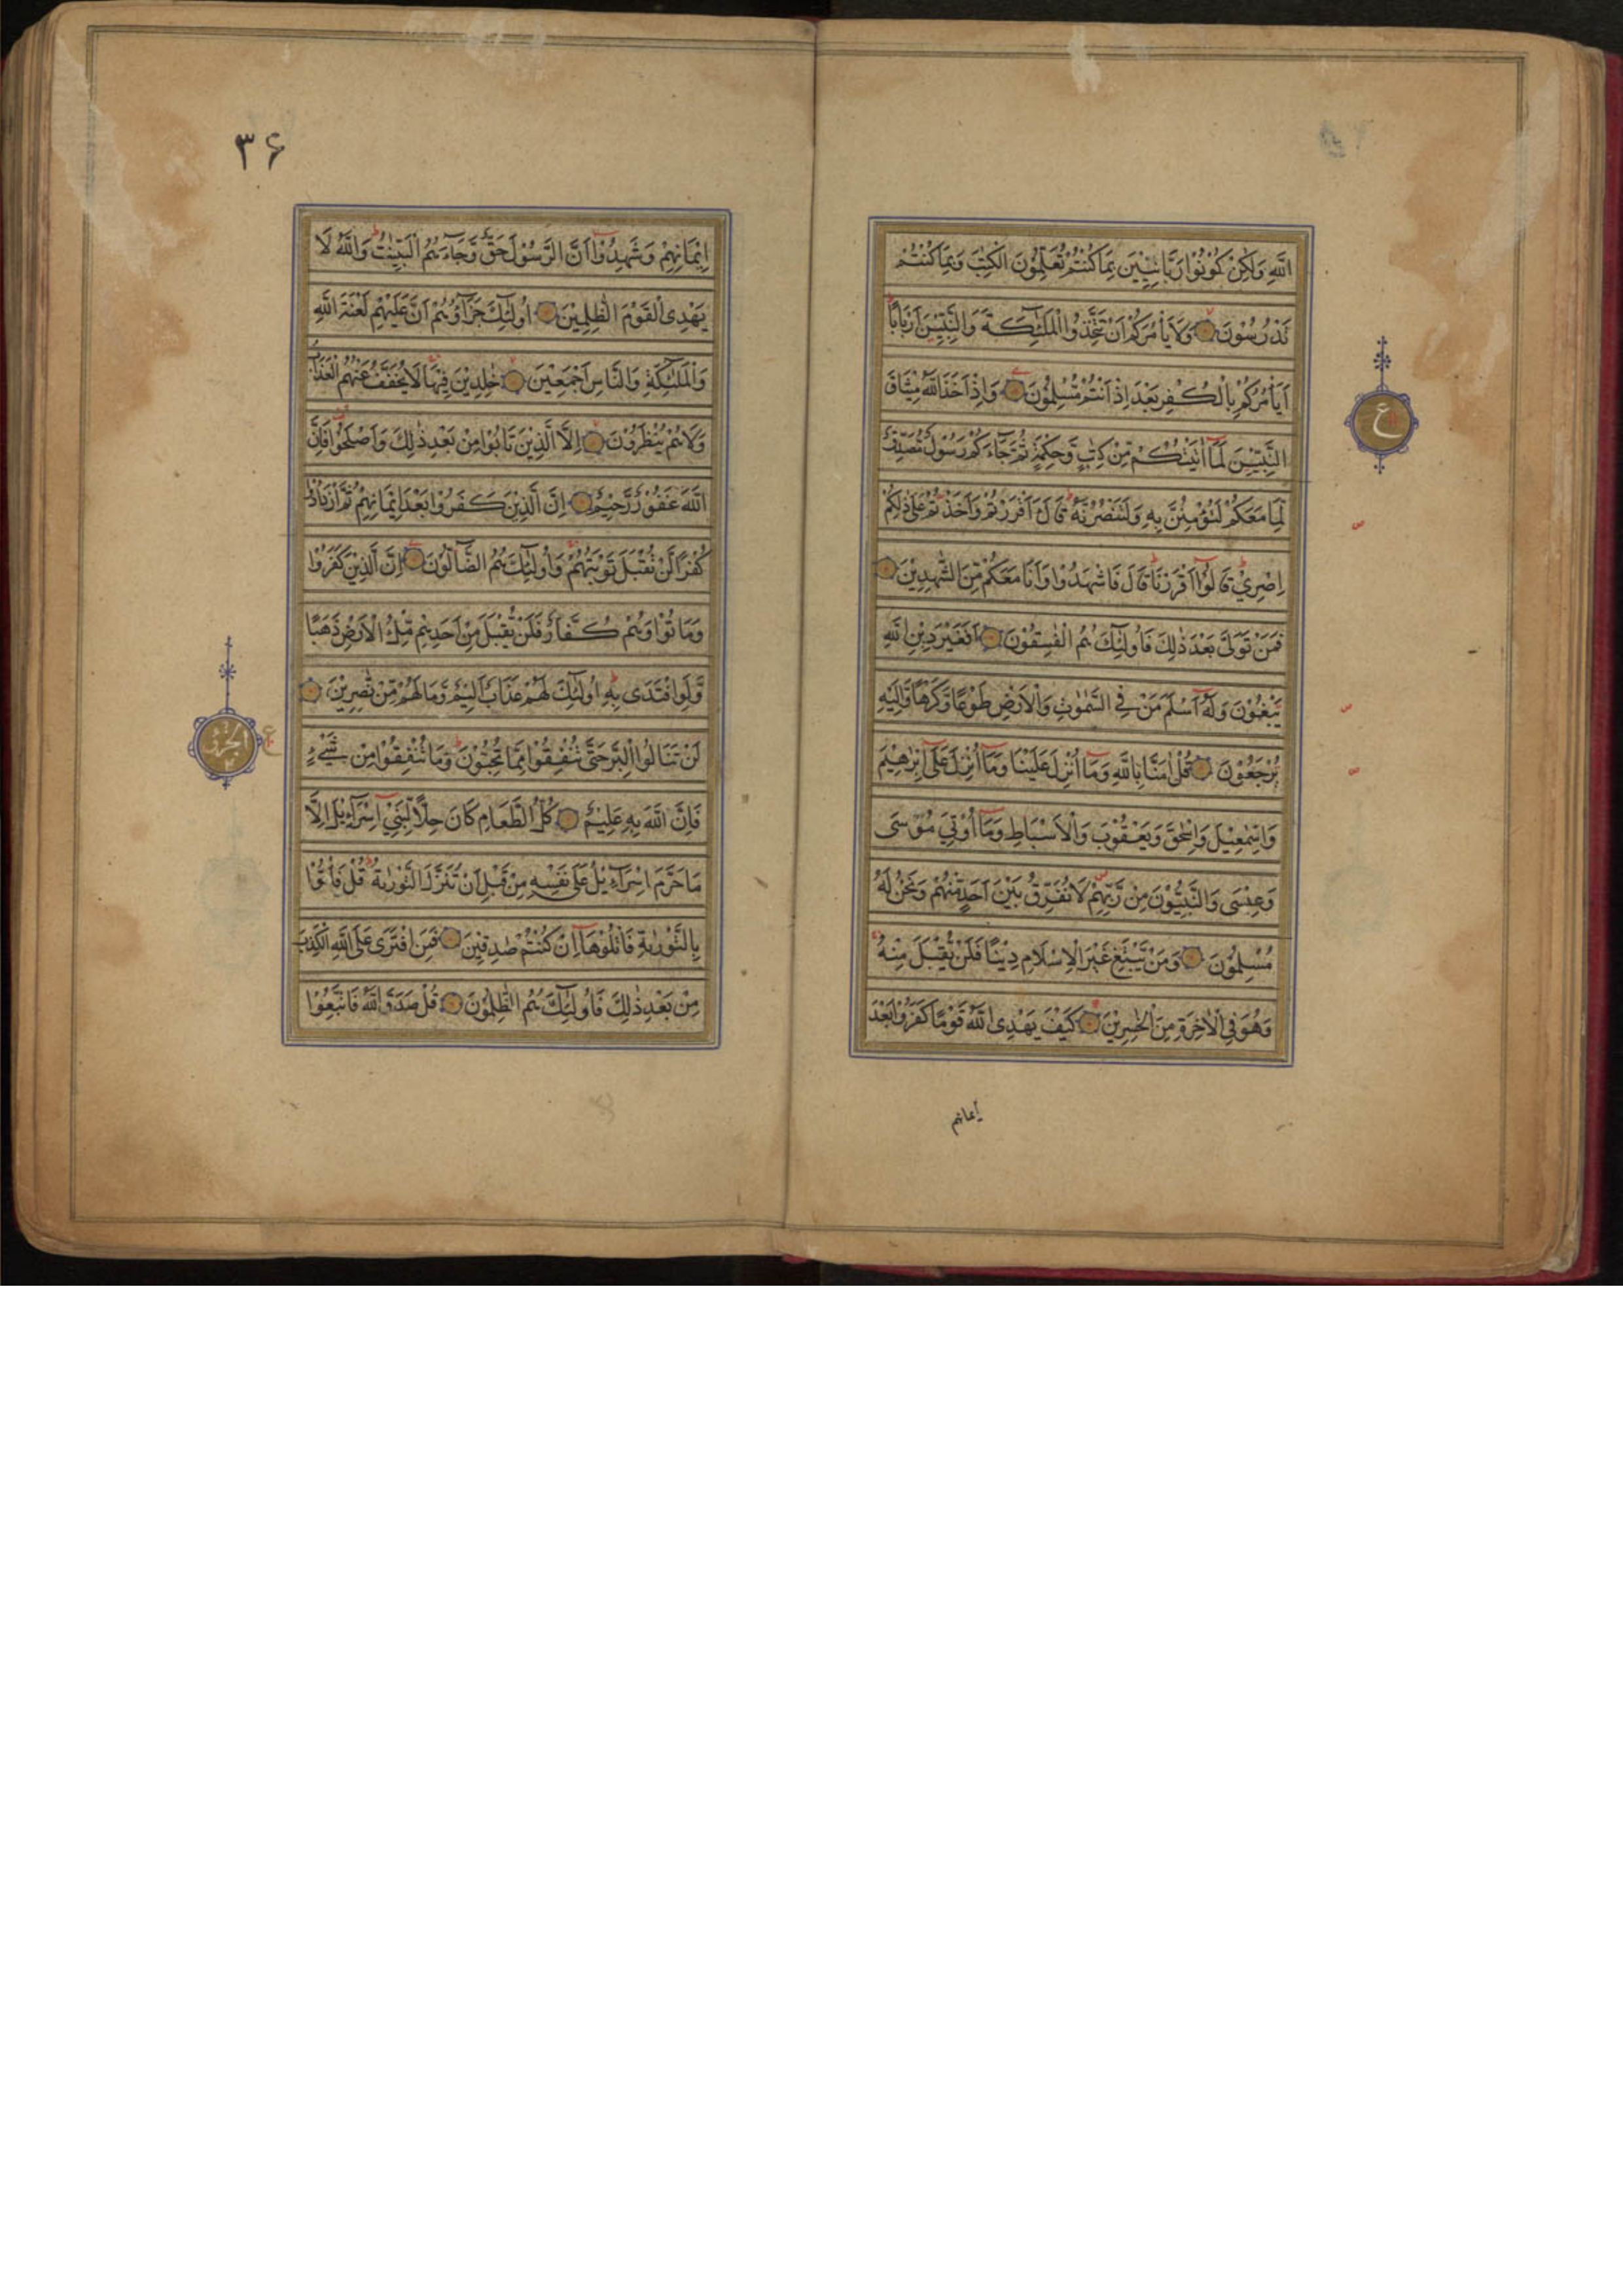 اللّٰهِ وَلٰكِنْ كُوْنُوْا رَبَّانِيّٖنَ بِمَا كُنْتُمْ تُعَلِّمُوْنَ الْكِتٰبَ وَبِمَا كُنْتُمْ
تَدْرُسُوْنَ وَلَا يَأْمُرَكُمْ اَنْ تَتَّخِذُوا الْمَلٰٓئِكَةَ وَالنَّبِيّٖنَ اَرْبَابًا
اَيَأْمُرُكُمْ بِالْكُفْرِ بَعْدَ اِذْ اَنْتُمْ مُسْلِمُوْنَ وَاِذْ اَخَذَ اللّٰهُ مِيْثَاقَ
النَّبِيّٖنَ لَمَآ اٰتَيْتُكُمْ مِّنْ كِتٰبٍ وَّحِكْمَةٍ ثُمَّ جَآءَكُمْ رَسُوْلٌ مُّصَدِّقٌ
لِّمَا مَعَكُمْ لَتُؤْمِنُنَّ بِهٖ وَلَتَنْصُرُنَّهٗ قَالَ ءَاَقْرَرْتُمْ وَاَخَذْتُمْ عَلٰى ذٰلِكُمْ
اِصْرِيْ قَالُوْٓا اَقْرَرْنَا قَالَ فَاشْهَدُوْا وَاَنَا مَعَكُمْ مِّنَ الشّٰهِدِيْنَ
فَمَنْ تَوَلّٰى بَعْدَ ذٰلِكَ فَاُولٰٓئِكَ هُمُ الْفٰسِقُوْنَ اَفَغَيْرَ دِيْنِ اللّٰهِ
يَبْغُوْنَ وَلَهٗٓ اَسْلَمَ مَنْ فِى السَّمٰوٰتِ وَالْاَرْضِ طَوْعًا وَّكَرْهًا وَّاِلَيْهِ
يُرْجَعُوْنَ قُلْ اٰمَنَّا بِاللّٰهِ وَمَآ اُنْزِلَ عَلَيْنَا وَمَآ اُنْزِلَ عَلٰٓى اِبْرٰهِيْمَ
وَاِسْمٰعِيْلَ وَاِسْحٰقَ وَيَعْقُوْبَ وَالْاَسْبَاطِ وَمَآ اُوْتِيَ مُوْسٰى
وَعِيْسٰى وَالنَّبِيُّوْنَ مِنْ رَّبِّهِمْ لَا نُفَرِّقُ بَيْنَ اَحَدٍ مِّنْهُمْ وَنَحْنُ لَهٗ
مُسْلِمُوْنَ وَمَنْ يَّبْتَغِ غَيْرَ الْاِسْلَامِ دِيْنًا فَلَنْ يُّقْبَلَ مِنْهُ
وَهُوَ فِى الْاٰخِرَةِ مِنَ الْخٰسِرِيْنَ كَيْفَ يَهْدِى اللّٰهُ قَوْمًا كَفَرُوْا بَعْدَ
ايمانهم
ع
٣۶
اِيْمَانِهِمْ وَشَهِدُوْٓا اَنَّ الرَّسُوْلَ حَقٌّ وَّجَآءَهُمُ الْبَيِّنٰتُ وَاللّٰهُ لَا
يَهْدِى الْقَوْمَ الظّٰلِمِيْنَ اُولٰٓئِكَ جَزَآؤُهُمْ اَنَّ عَلَيْهِمْ لَعْنَةَ اللّٰهِ
وَالْمَلٰٓئِكَةِ وَالنَّاسِ اَجْمَعِيْنَ خٰلِدِيْنَ فِيْهَا لَا يُخَفَّفُ عَنْهُمُ الْعَذَابُ
وَلَا هُمْ يُنْظَرُوْنَ اِلَّا الَّذِيْنَ تَابُوْا مِنْ بَعْدِ ذٰلِكَ وَاَصْلَحُوْا فَاِنَّ
اللّٰهَ غَفُوْرٌ رَّحِيْمٌ اِنَّ الَّذِيْنَ كَفَرُوْا بَعْدَ اِيْمَانِهِمْ ثُمَّ ازْدَادُوْا
كُفْرًا لَّنْ تُقْبَلَ تَوْبَتُهُمْ وَاُولٰٓئِكَ هُمُ الضَّآلُّوْنَ اِنَّ الَّذِيْنَ كَفَرُوْا
وَمَاتُوْا وَهُمْ كُفَّارٌ فَلَنْ يُّقْبَلَ مِنْ اَحَدِهِمْ مِّلْءُ الْاَرْضِ ذَهَبًا
وَّلَوِ افْتَدٰى بِهٖ اُولٰٓئِكَ لَهُمْ عَذَابٌ اَلِيْمٌ وَّمَا لَهُمْ مِّنْ نّٰصِرِيْنَ
لَنْ تَنَالُوا الْبِرَّ حَتّٰى تُنْفِقُوْا مِمَّا تُحِبُّوْنَ وَمَا تُنْفِقُوْا مِنْ شَيْءٍ
فَاِنَّ اللّٰهَ بِهٖ عَلِيْمٌ كُلُّ الطَّعَامِ كَانَ حِلًّا لِّبَنِيْٓ اِسْرَآءِيْلَ اِلَّا
مَا حَرَّمَ اِسْرَآءِيْلُ عَلٰى نَفْسِهٖ مِنْ قَبْلِ اَنْ تُنَزَّلَ التَّوْرٰىةُ قُلْ فَأْتُوْا
بِالتَّوْرٰىةِ فَاتْلُوْهَآ اِنْ كُنْتُمْ صٰدِقِيْنَ فَمَنِ افْتَرٰى عَلَى اللّٰهِ الْكَذِبَ
مِنْ بَعْدِ ذٰلِكَ فَاُولٰٓئِكَ هُمُ الظّٰلِمُوْنَ قُلْ صَدَقَ اللّٰهُ فَاتَّبِعُوْا
الجزء ٤
ع